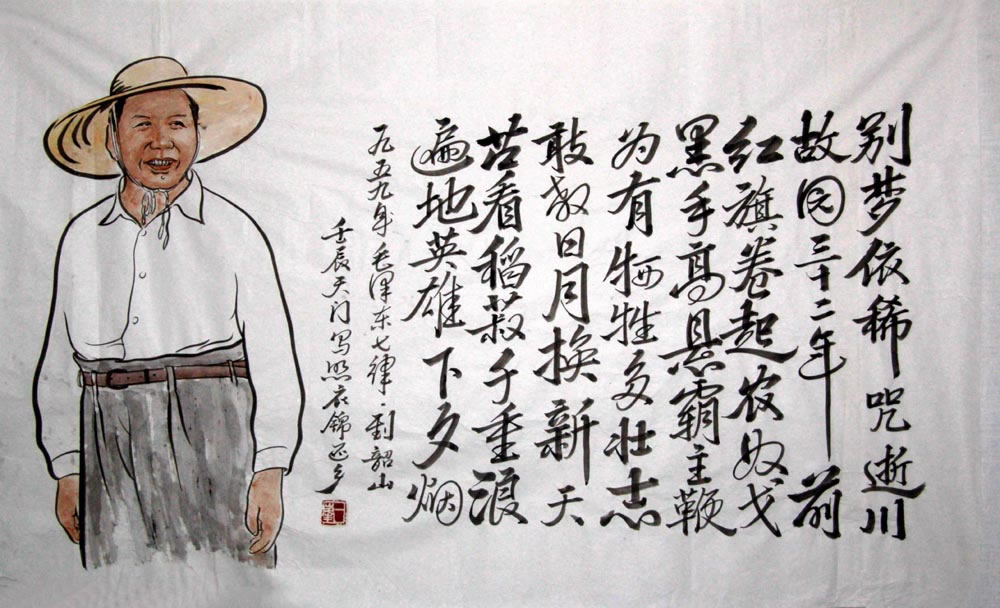 别梦依稀咒逝川
故园三十二年前
红旗卷起农奴戈
黑手高悬霸主鞭
为有牺牲多壮志
敢教日月换新天
喜看稻菽千重浪
遍地英雄下夕烟
一九五九年毛泽东七律·到韶山
壬辰天门写照衣锦还乡